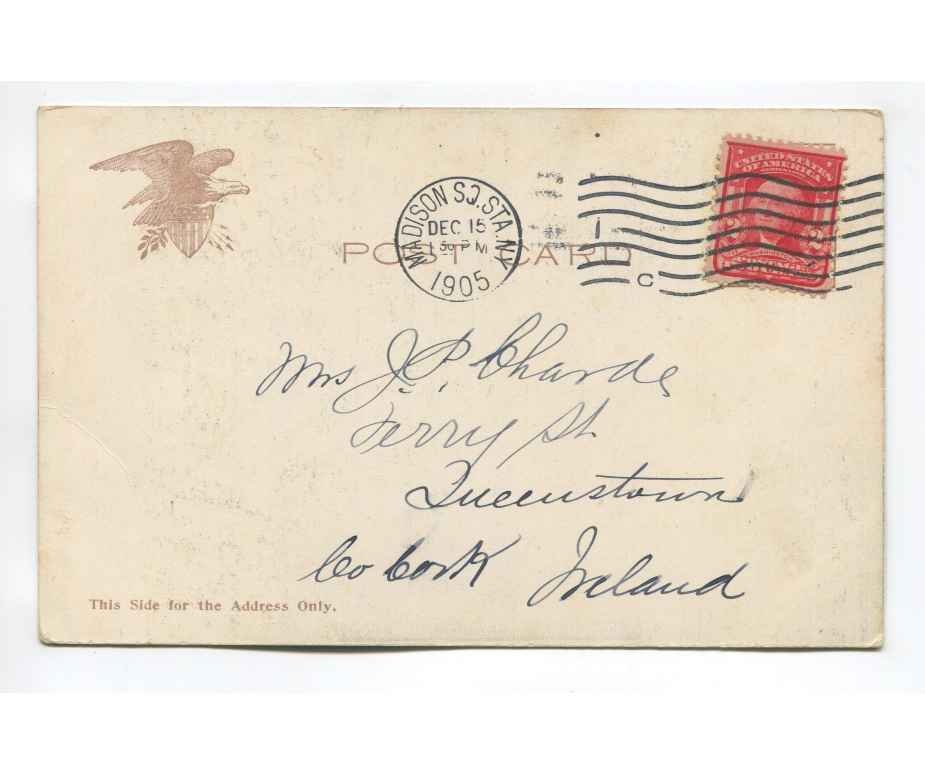 MADISON SQ. STA. N.Y.
DEC 15
1905
POST CARD
1
C
UNITED STATES
OF AMERICA
2 2
Mrs J. P.
Ferry St
Queenstown
Co Cork Ireland
This Side for the Address Only.